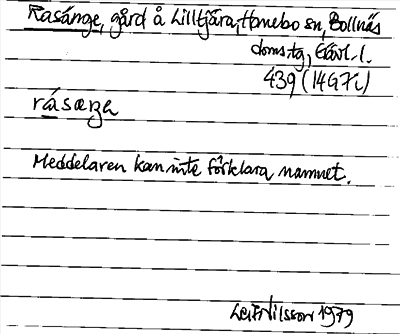 Rasänge, gård å Lilltjära, Hanebo sn, Bollnäs
doms.tg, Gävl. l.
439 (14G7i)
råsæŋə
Meddelaren kan inte förklara namnet.
Leif Nilsson 1979